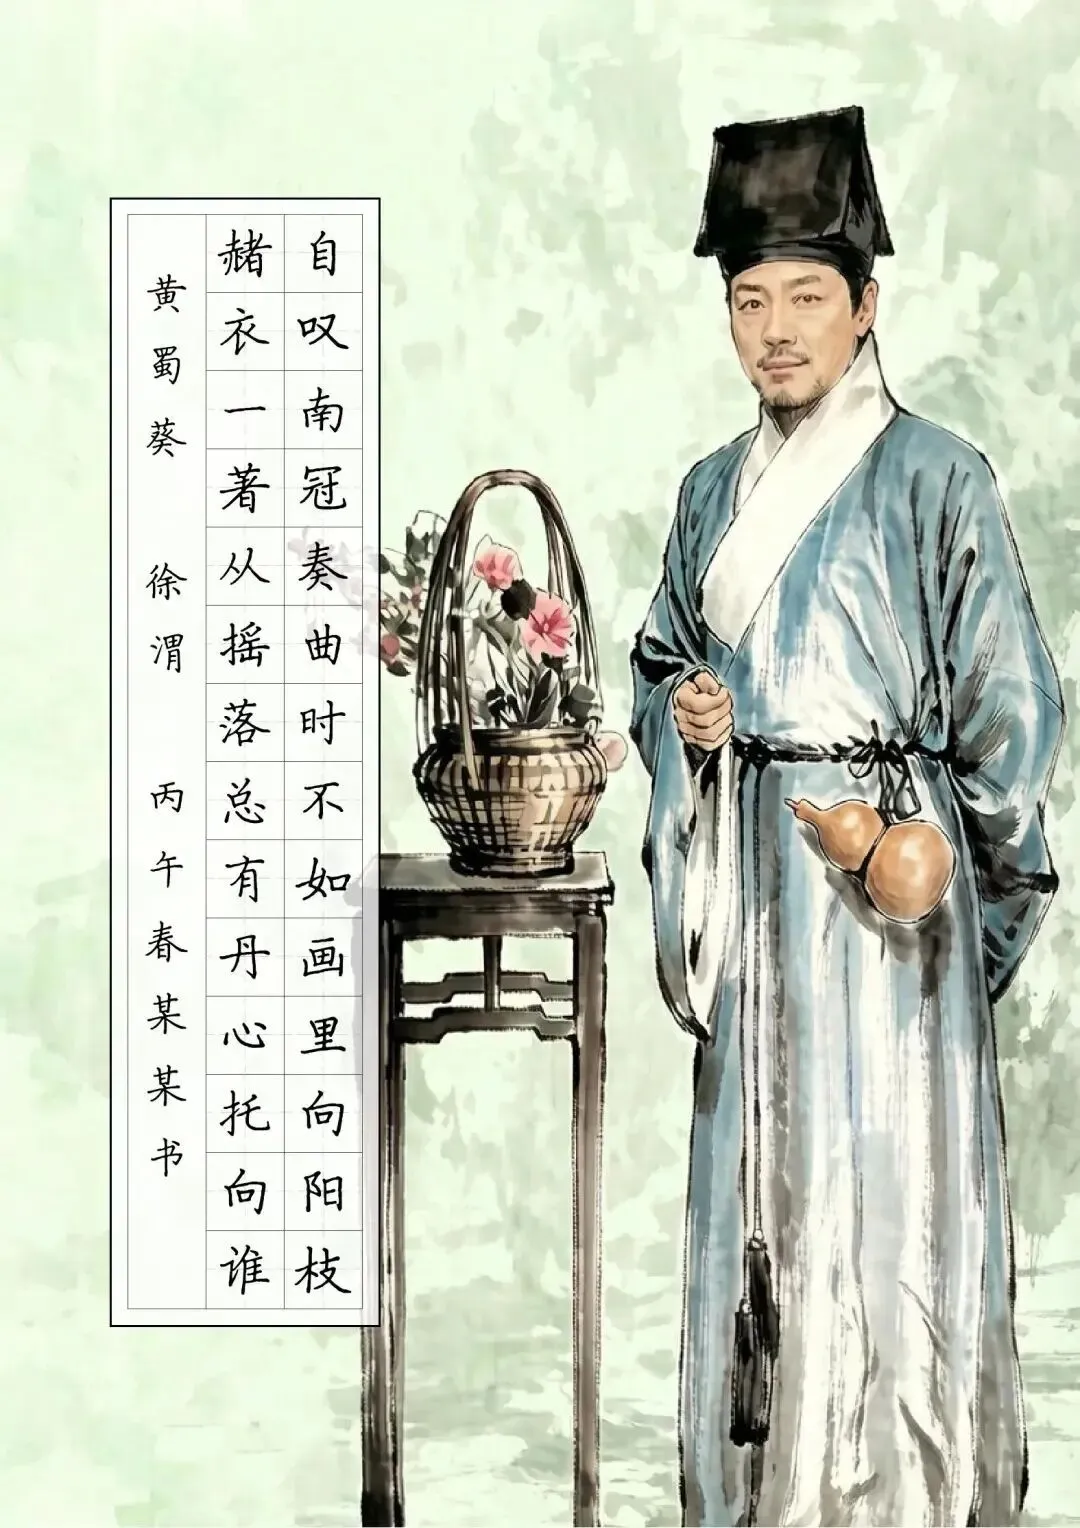 自叹南冠奏曲时不如画里向阳枝
赭衣一著从摇落总有丹心托向谁
黄蜀葵 徐渭 丙午春某某书